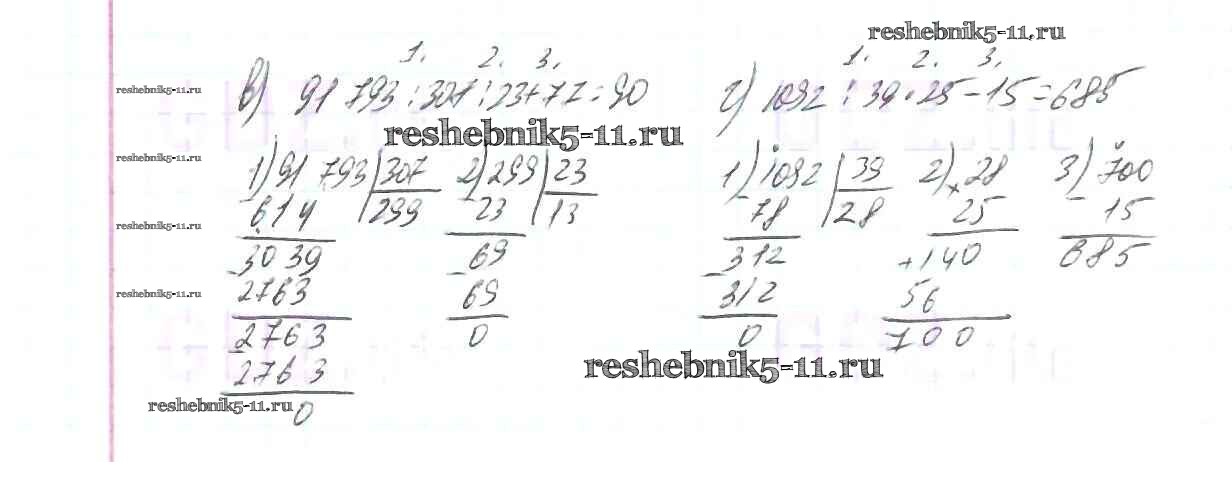 reshebnik5-11.ru
1. 2. 3.
в) 91 793 : 307 : 23 + 77 = 90
1. 2. 3.
г) 1092 : 39 · 25 - 15 = 685
reshebnik5-11.ru
reshebnik5-11.ru
reshebnik5-11.ru
1) 91 793 | 307
- 614 | 299
3039
- 2763
2763
- 2763
0
2) 299 | 23
- 23 | 13
69
- 69
0
1) 1092 | 39
- 78 | 28
312
- 312
0
2) × 28
25
+ 140
56
700
3) 700
- 15
685
reshebnik5-11.ru
reshebnik5-11.ru
reshebnik5-11.ru
reshebnik5-11.ru